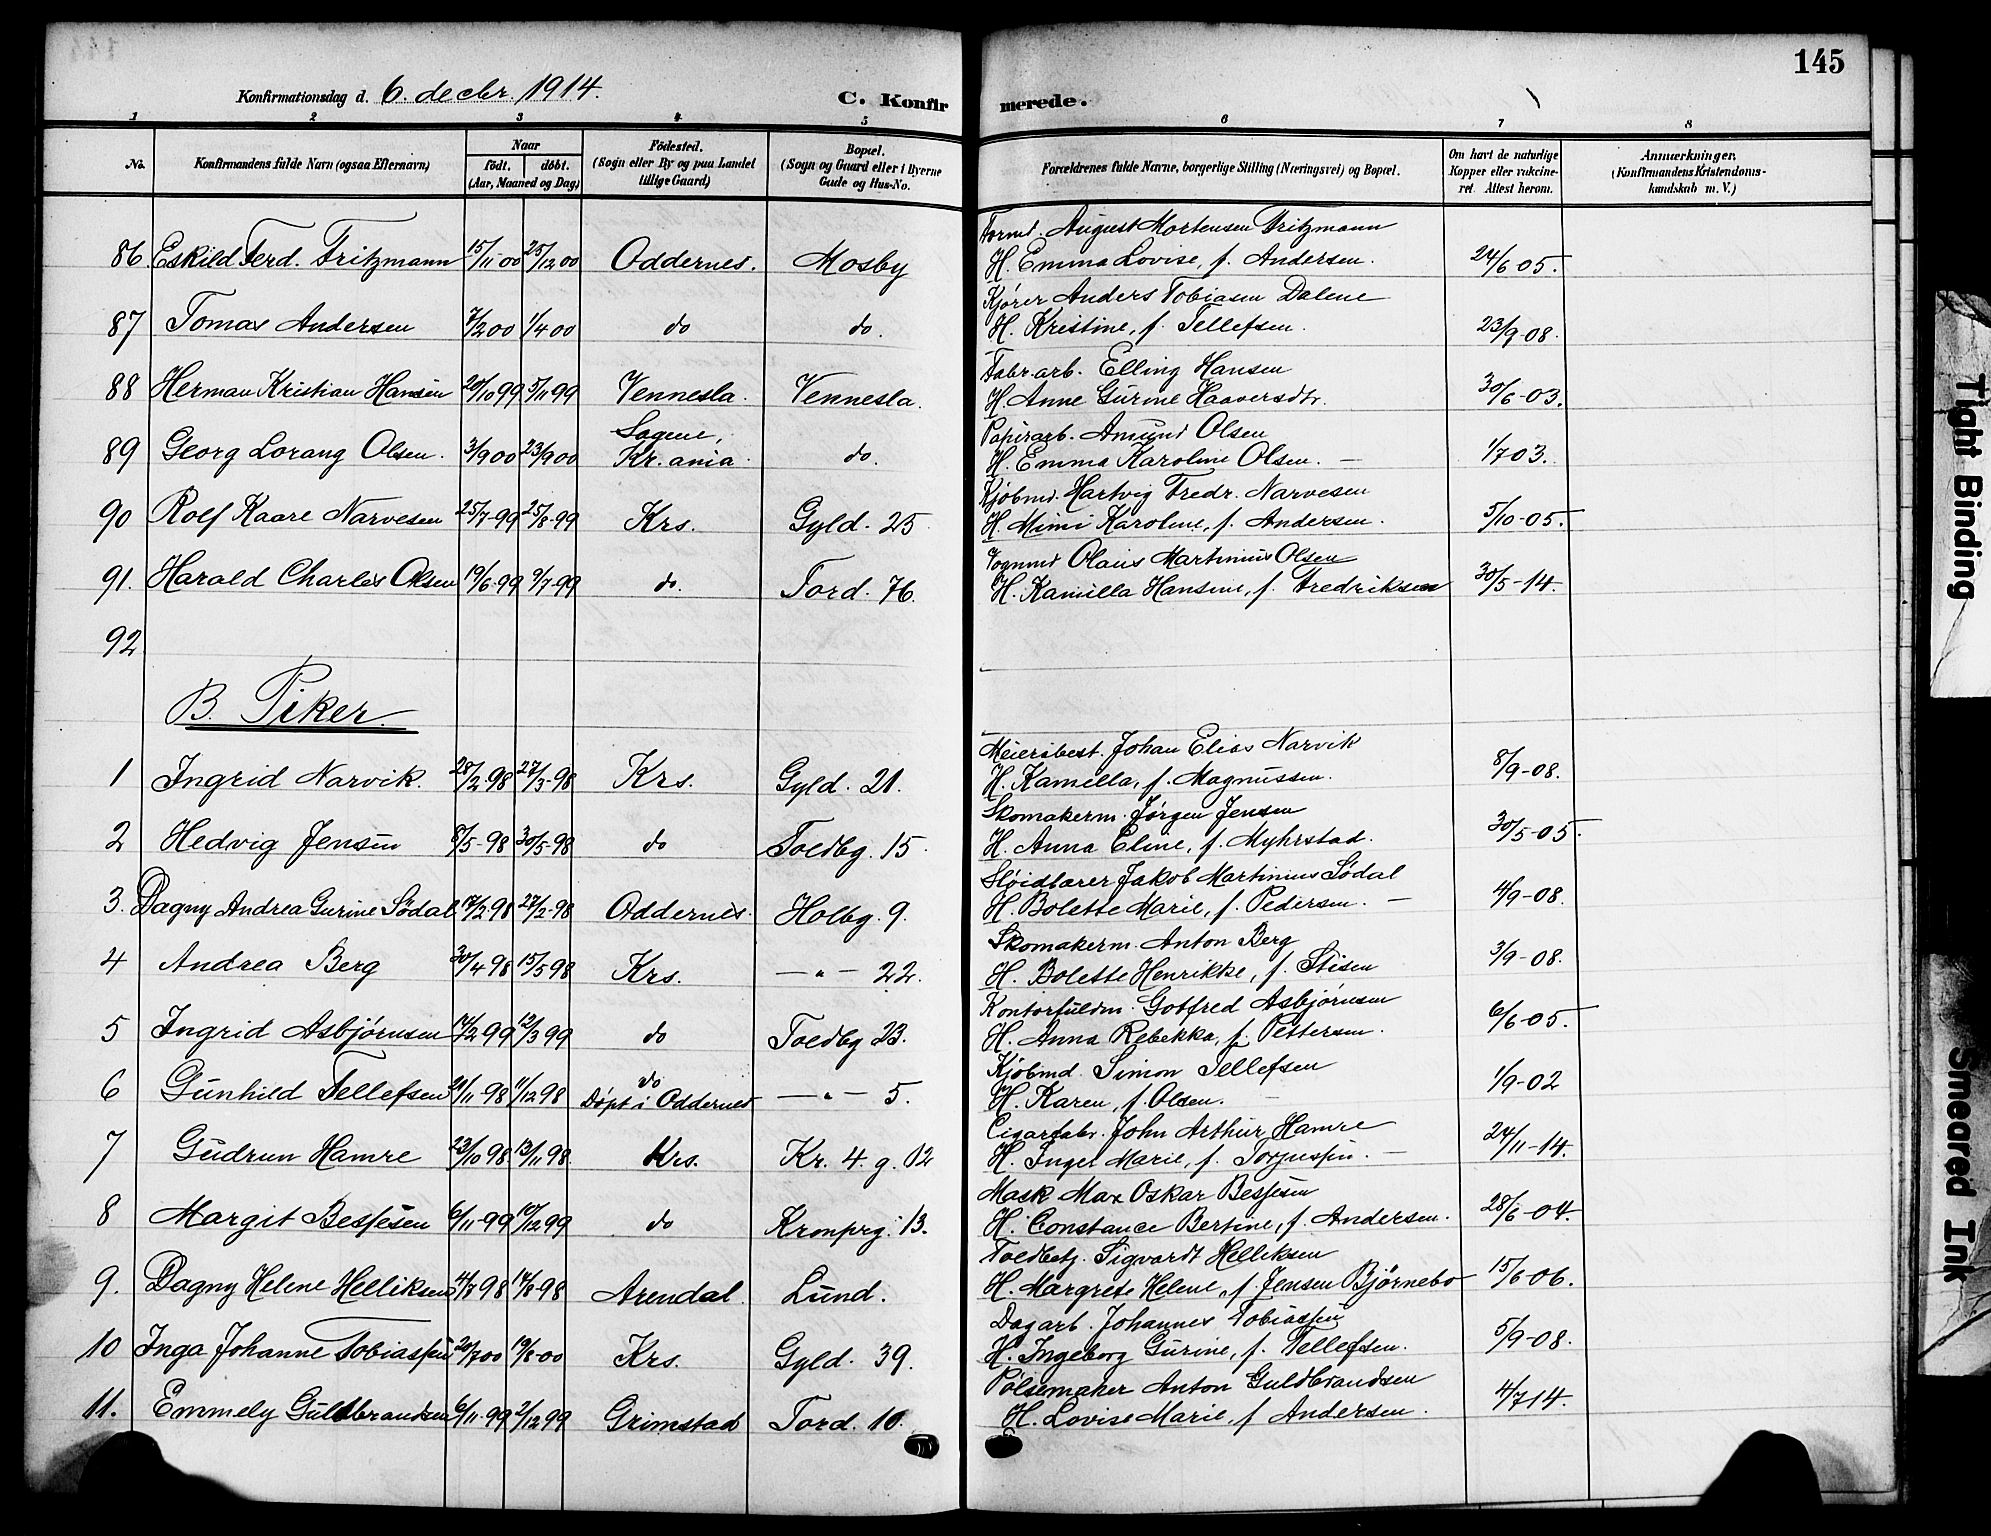 145
Konfirmationsdag d. 6. decbr. 1914.
C. Konfir merede.
1 2 3 4 5 6 7 8
No. Konfirmandens fulde Navn (ogsaa Efternavn) Naar født. døbt. (Aar, Maaned og Dag) Fødested. (Sogn eller By og paa Landet tillige Gaard) Bopæl. (Sogn og Gaard eller i Byerne Gade og Hus-No. Forældrenes fulde Navne, borgerlige Stilling (Næringsvei) og Bopæl. Om havt de naturlige Kopper eller vakcineret. Attest herom. Anmærkninger. (Konfirmandens Kristendomskundskab m. V.)
Formd. August Mortensen Fritzmann
86 Eskild Ferd. Fritzmann 15/11 00 25/12 00 Oddernes. Mosby H. Emma Lovise, f. Andersen. 24/6 05.
Kjører Anders Tobiasen Dalene
87 Tomas Andersen 7/2 00 1/4 00 do do. H. Kristine, f. Tellefsen. 23/9-08.
Fabr.arb. Elling Hansen
88 Herman Kristian Hansen 20/10 99 5/11 99 Vennesla. Vennesla. H. Anne Gurine Haaversdtr. 30/6-03.
Sagene, Papirarb. Amund Olsen
89 Georg Lorang Olsen. 3/9 00 23/9 00 Kr.ania. do. H. Emma Karoline Olsen. — 1/7 03.
Kjøbmd. Hartvig Fredr. Narvesen
90 Rolf Kaare Narvesen 25/7-99 25/8-99 Krs. Gyld. 25. H. Mimi Karoline, f. Andersen. 5/10-05.
Vognmd Olaus Martinius Olsen
91. Harald Charles Olsen 19/6-99 9/7-99 do. Tord. 76. H. Kamilla Hansine, f. Fredriksen 30/5-14.
92
B. Piker.
Meieribest. Johan Elias Narvik
1 Ingrid Narvik. 28/2-98 27/3-98 Krs. Gyld. 21. H. Kamilla, f. Magnussen. 8/9-08.
Skomakerm. Jørgen Jensen
2 Hedvig Jensen 8/5-98 30/5-98 do Toldbg. 15. H. Anna Eline, f. Myhrstad. 30/5-05.
Sløidlærer Jakob Martinius Sødal
3. Dagny Andrea Gurine Sødal 17/2 98 27/2-98 Oddernes. Holbg. 9. H. Bolette Marie, f. Pedersen. — 4/9-08.
Skomakerm. Anton Berg
4 Andrea Berg 30/4 98 15/5 98 Krs. —"— 22. H. Bolette Henrikke, f. Stisen 3/9-08.
Kontorfuldm. Gotfred Asbjørnsen
5 Ingrid Asbjørnsen 14/2 99 12/3 99 do Toldbg 23. H. Anna Rebekka, f. Pettersen. 6/6-05.
do Kjøbmd. Simon Tellefsen
6 Gunhild Tellefsen 21/11-98 11/12 98 Døpt i Oddernes —"— 5. H. Karen, f. Olsen. 1/9-02
Cigarfabr. John Arthur Hamre
7 Gudrun Hamre 23/10 98 13/11 98 Krs. Kr. 4. g. 12 H. Inget Marie, f. Torjussen. — 24/11-14.
Mask Max Oskar Besfesen
8 Margit Besfesen 6/11-99 10/12 99 do Kronprg. 13. H. Constance Bertine, f. Andersen. 28/6-04.
Toldbetj. Sigvardt Helliksen
9. Dagny Helene Helliksen 4/7 98 14/8-98 Arendal. Lund. H. Margrete Helene, f. Jensen Bjørnebo 15/6-06.
Dagarb. Johannes Tobiassen
10 Inga Johanne Tobiassen 20/7 00 19/8-00 Krs. Gyld. 39. H. Ingeborg Gurine, f. Tellefsen. 5/9-08.
Pølsemaker Anton Guldbrandsen
11. Emmely Guldbrandsen 6/11-99 2/12 99 Grimstad Tord. 10. H. Lovise Marie, f. Andersen. 4/7 14.
Tight Binding
Smeared Ink